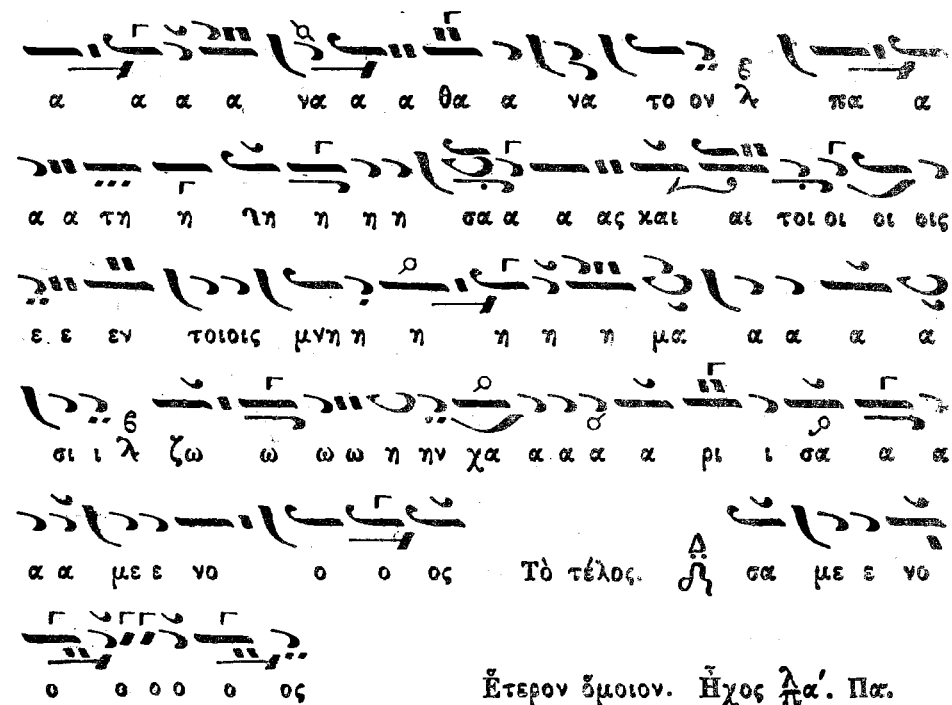 α α α α να α α θα α να το ον λ πα α
α α τη η λη η η η σα α α ας και αι τοι οι οι οις
ε ε εν τοιοις μνη η η η η η μα α α α α
σι ι λ ζω ω ω ω η ην χα α α α α ρι ι σα α α
α α με ε νο ο ο ος Τὸ τέλος. Δ σα με ε νο
ο ο ο ο ο ος Ἕτερον ὅμοιον. Ἦχος λ π α΄. Πα.